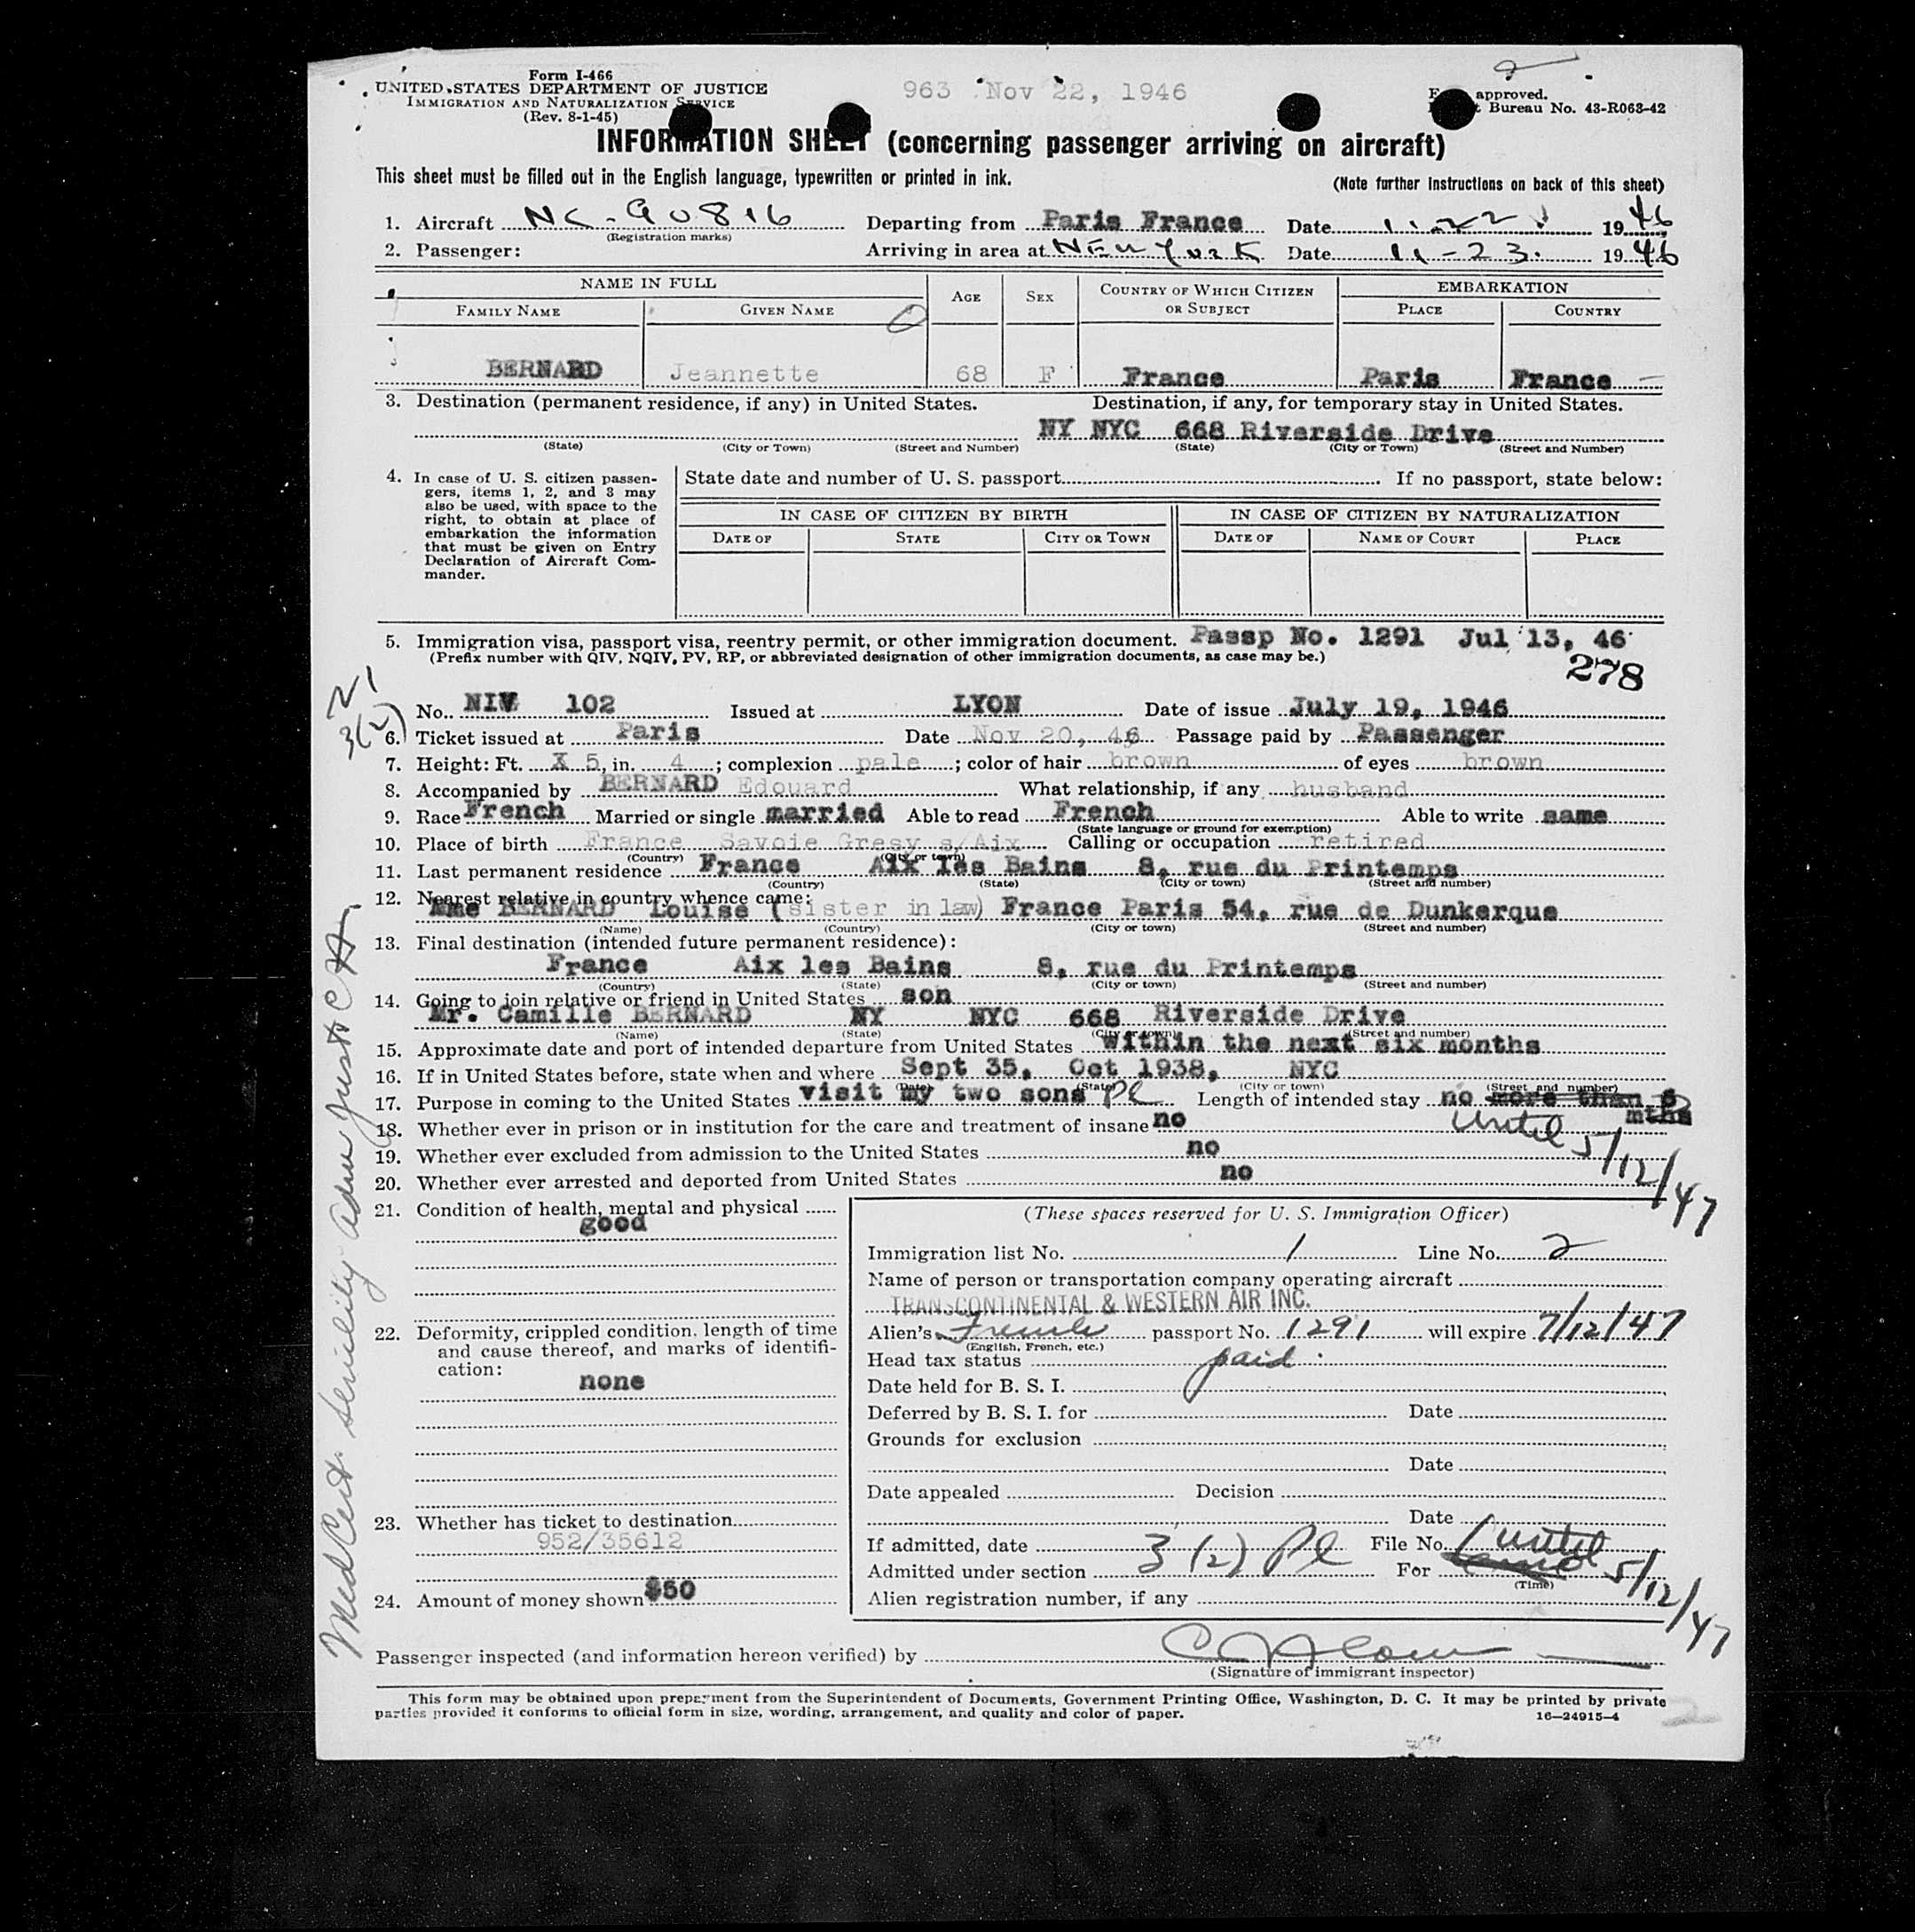 Form I-466
UNITED STATES DEPARTMENT OF JUSTICE
IMMIGRATION AND NATURALIZATION SERVICE
(Rev. 8-1-45)
963 Nov 22, 1946
approved.
Bureau No. 43-R063-42
INFORMATION SHEET (concerning passenger arriving on aircraft)
This sheet must be filled out in the English language, typewritten or printed in ink.
(Note further instructions on back of this sheet)
1. Aircraft NC-90816 Departing from Paris France Date 11-22 1946
(Registration marks)
2. Passenger: Arriving in area at NEW York Date 11-23. 1946
NAME IN FULL AGE SEX COUNTRY OF WHICH CITIZEN OR SUBJECT EMBARKATION
FAMILY NAME GIVEN NAME PLACE COUNTRY
BERNARD Jeannette 68 F France Paris France
3. Destination (permanent residence, if any) in United States. Destination, if any, for temporary stay in United States.
NY NYC 668 Riverside Drive
(State) (City or Town) (Street and Number) (State) (City or Town) (Street and Number)
4. In case of U. S. citizen passen-
gers, items 1, 2, and 3 may
also be used, with space to the
right, to obtain at place of
embarkation the information
that must be given on Entry
Declaration of Aircraft Com-
mander.
State date and number of U. S. passport If no passport, state below:
IN CASE OF CITIZEN BY BIRTH IN CASE OF CITIZEN BY NATURALIZATION
DATE OF STATE CITY OR TOWN DATE OF NAME OF COURT PLACE
5. Immigration visa, passport visa, reentry permit, or other immigration document. Passp No. 1291 Jul 13, 46
(Prefix number with QIV, NQIV, PV, RP, or abbreviated designation of other immigration documents, as case may be.)
278
21
3(2)
No. NIV 102 Issued at LYON Date of issue July 19, 1946
6. Ticket issued at Paris Date Nov 20, 46 Passage paid by Passenger
7. Height: Ft. X 5, in. 4 ; complexion pale ; color of hair brown of eyes brown
8. Accompanied by BERNARD Edouard What relationship, if any husband
9. Race French Married or single married Able to read French Able to write same
(State language or ground for exemption)
10. Place of birth France Savoie Gresy s/Aix Calling or occupation retired
(Country) (City or town)
11. Last permanent residence France Aix les Bains 8, rue du Printemps
(Country) (State) (City or town) (Street and number)
12. Nearest relative in country whence came:
Mme BERNARD Louise (sister in law) France Paris 54, rue de Dunkerque
(Name) (Country) (City or town) (Street and number)
13. Final destination (intended future permanent residence):
France Aix les Bains 8, rue du Printemps
(Country) (State) (City or town) (Street and number)
14. Going to join relative or friend in United States son
Mr. Camille BERNARD NY NYC 668 Riverside Drive
(Name) (State) (City or town) (Street and number)
15. Approximate date and port of intended departure from United States Within the next six months
16. If in United States before, state when and where Sept 35, Oct 1938, NYC
(Date) (State) (City or town) (Street and number)
17. Purpose in coming to the United States visit my two sons Pl Length of intended stay no more than 6 mths
until 5/12/47
18. Whether ever in prison or in institution for the care and treatment of insane no
19. Whether ever excluded from admission to the United States no
20. Whether ever arrested and deported from United States no
21. Condition of health, mental and physical
good
22. Deformity, crippled condition, length of time
and cause thereof, and marks of identifi-
cation:
none
23. Whether has ticket to destination
952/35612
24. Amount of money shown $50
(These spaces reserved for U. S. Immigration Officer)
Immigration list No. 1 Line No. 2
Name of person or transportation company operating aircraft
TRANSCONTINENTAL & WESTERN AIR INC.
Alien's French passport No. 1291 will expire 7/12/47
(English, French, etc.)
Head tax status paid.
Date held for B. S. I.
Deferred by B. S. I. for Date
Grounds for exclusion
Date
Date appealed Decision
Date
If admitted, date File No.
until 5/12/47
Admitted under section 3(2) Pl For
(Time)
Alien registration number, if any
Passenger inspected (and information hereon verified) by
(Signature of immigrant inspector)
This form may be obtained upon prepayment from the Superintendent of Documents, Government Printing Office, Washington, D. C. It may be printed by private
parties provided it conforms to official form in size, wording, arrangement, and quality and color of paper.
16—24915-4
Med Cert senility